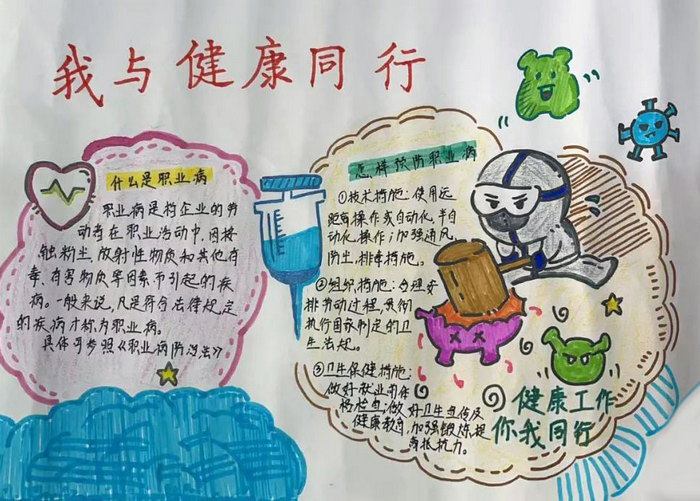 我与健康同行
什么是职业病
职业病是指企业的劳
动者在职业活动中，因接
触粉尘、放射性物质和其他有
毒、有害物质等因素而引起的疾
病。一般来说，凡是符合法律规定
的疾病才称为职业病。
具体可参照《职业病防治法》
怎样预防职业病
①技术措施：使用远
距离操作或自动化、半自
动化操作；加强通风、
防尘、排毒措施。
②组织措施：合理安
排劳动过程，贯彻
执行国家制定的卫
生法规。
③卫生保健措施：
做好就业前体
格检查；做好卫生宣传及
健康教育，加强锻炼，提
高抵抗力。
健康工作
你我同行